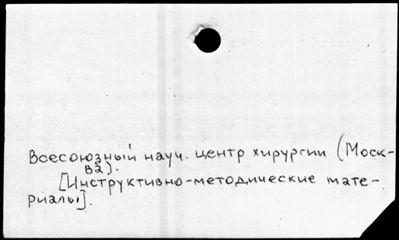 Всесоюзный науч. центр хирургии (Моск-
ва).
[Инструктивно-методические мате-
риалы].